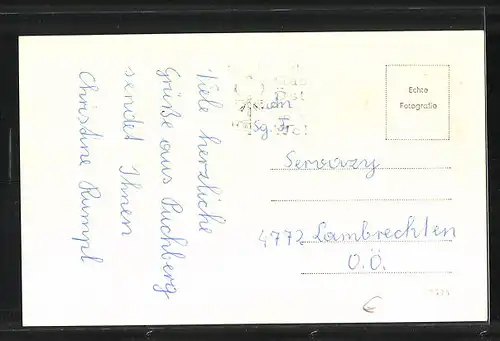 Viele herzliche
Grüße aus Puchberg
sendet Ihnen
Christine Rumpl
Echte
Fotografie
4772 Lambrechten
O.Ö.